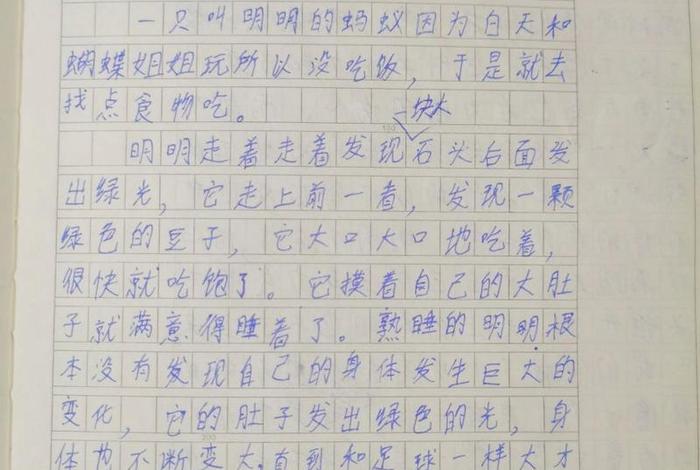 一只叫明明的蚂蚁因为白天和
蝴蝶姐姐玩所以没吃饭，于是就去
找点食物吃。
一块大
明明走着走着发现石头后面发
出绿光，它走上前一看，发现一颗
绿色的豆子，它大口大口地吃着，
很快就吃饱了。它摸着自己的大肚
子就满意得睡着了。熟睡的明明根
本没有发现自己的身体发生巨大的
变化，它的肚子发出绿色的光，身
体也不断变大，直到和足球一样大才